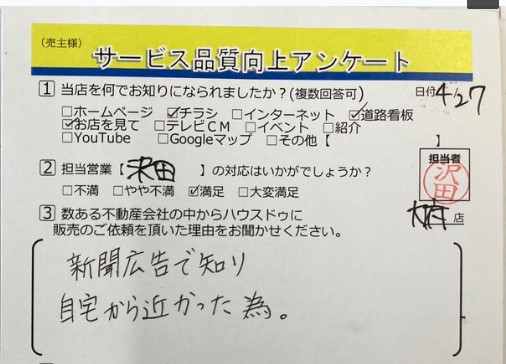 (売主様)
サービス品質向上アンケート
1 当店を何でお知りになられましたか？(複数回答可) 日付 4/27
□ホームページ ☑チラシ □インターネット ☑道路看板
☑お店を見て □テレビCM □イベント □紹介
□YouTube □Googleマップ □その他【 】
2 担当営業【沢田】の対応はいかがでしょうか？
□不満 □やや不満 ☑満足 □大変満足
担当者
沢田
店
3 数ある不動産会社の中からハウスドゥに
販売のご依頼を頂いた理由をお聞かせください。
新聞広告で知り
自宅から近かった為。